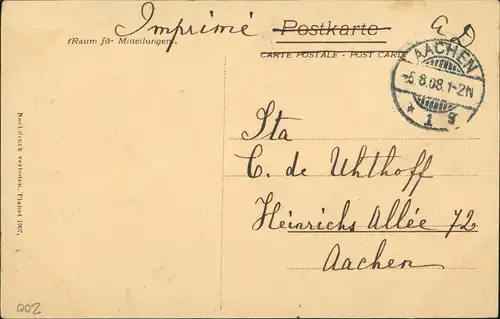 Imprimé
Postkarte
a D
(Raum für Mitteilungen).
CARTE POSTALE - POST CARD
AACHEN
-5.8.08.1-2N
* 1 g
Sta
C. de Uhlhoff
Heinrichs Allée 72
Aachen
Nachdruck verboten. Planet 1907.
002